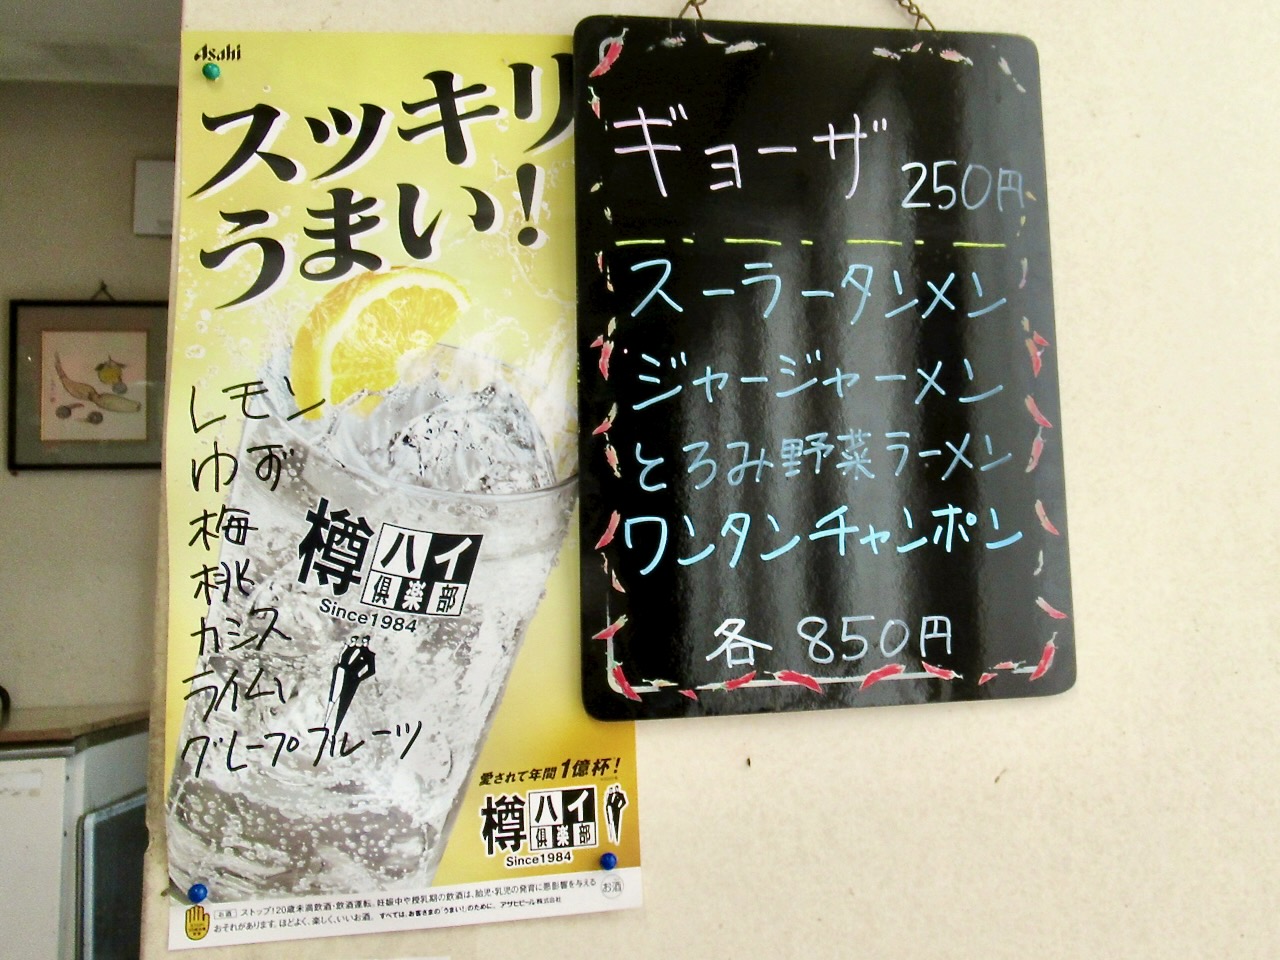 Asahi
スッキリ
うまい!
レモン
ゆず
梅
桃
カシス
ライム
グレープフルーツ
樽ハイ
倶楽部
Since1984
愛されて年間1億杯!
樽ハイ
倶楽部
Since1984
お酒
お酒 ストップ!20歳未満飲酒・飲酒運転。妊娠中や授乳期の飲酒は、胎児・乳児の発育に悪影響を与える
おそれがあります。ほどよく、楽しく、いいお酒。すべては、お客さまの「うまい!」のために。アサヒビール株式会社
ギョーザ
250円
スーラータンメン
ジャージャーメン
とろみ野菜ラーメン
ワンタンチャンポン
各 850円